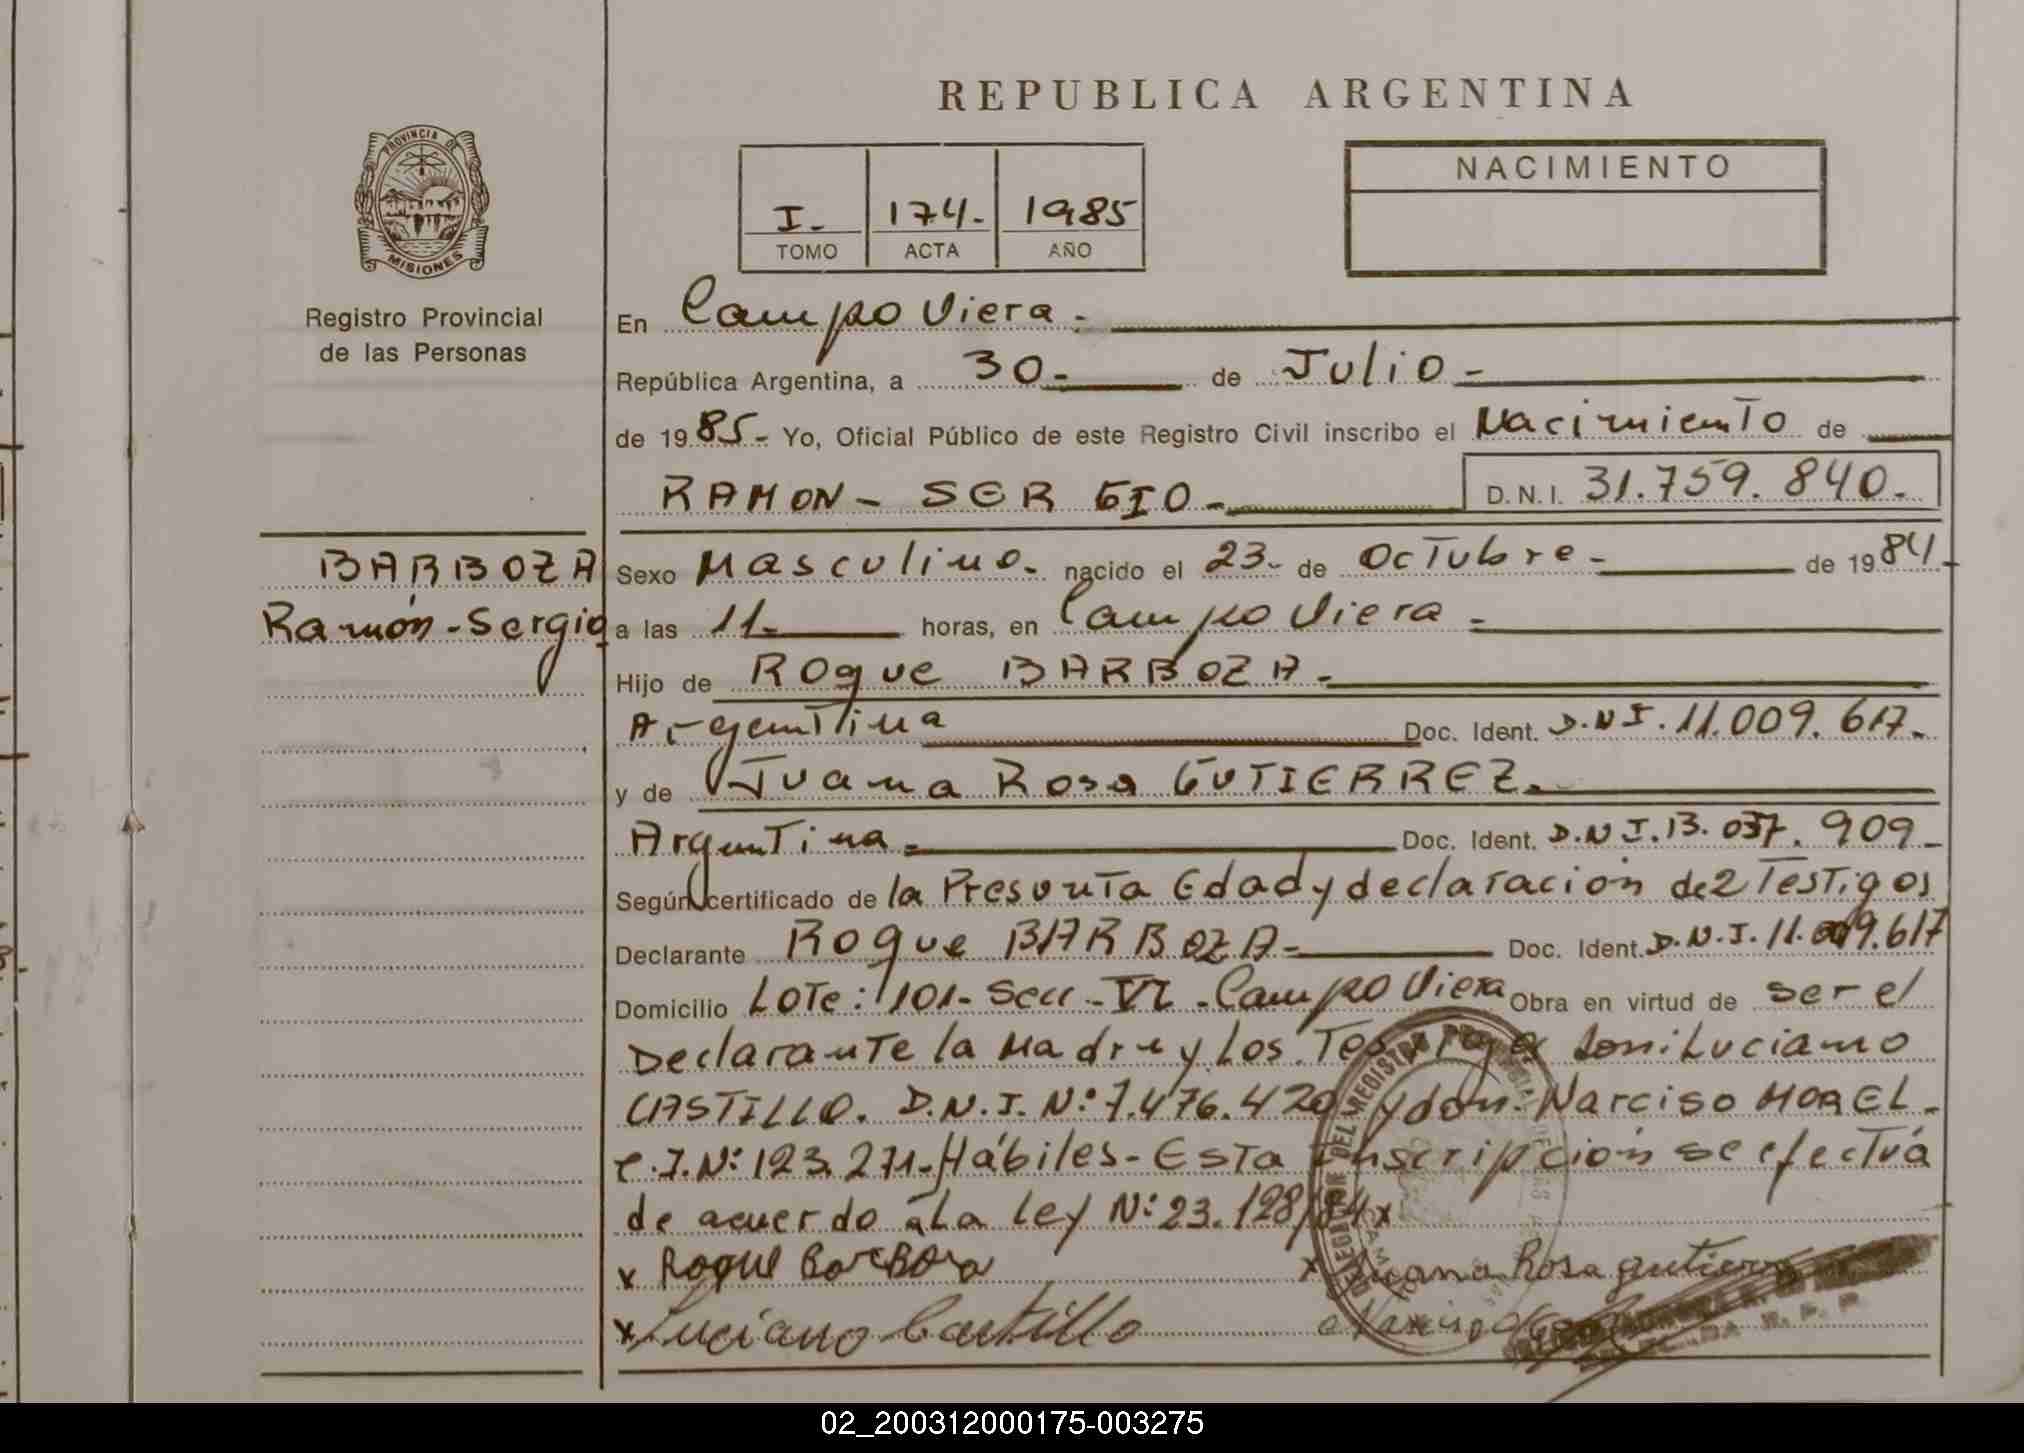 REPUBLICA ARGENTINA
PROVINCIA DE
MISIONES
Registro Provincial
de las Personas
NACIMIENTO
I- 174- 1985
TOMO ACTA AÑO
En Campo Viera -
República Argentina, a 30- de Julio -
de 1985- Yo, Oficial Público de este Registro Civil inscribo el Nacimiento de
RAMON - SERGIO - D.N.I. 31.759.840-
BARBOZA
Ramón - Sergio
Sexo Masculino- nacido el 23- de Octubre - de 1984-
a las 11- horas, en Campo Viera -
Hijo de Roque BARBOZA -
Argentina Doc. Ident. D.N.I. 11.009.617-
y de Juana Rosa GUTIERREZ-
Argentina - Doc. Ident. D.N.I. 13.037.909-
Según certificado de la Presunta Edad y declaración de 2 Testigos
Declarante Roque BARBOZA - Doc. Ident. D.N.I. 11.009.617
Domicilio Lote: 101- Secc - VI - Campo Viera Obra en virtud de ser el
Declarante la Madre y Los Testigos Luciano
CASTILLO. D.N.I. Nº 7.476.420 y don Narciso MOREL -
C.I. Nº 123.271- Hábiles - Esta Inscripción se efectuá
de acuerdo a La Ley Nº 23.128/84 x
x Roque Barboza x Juana Rosa gutierrez
x Luciano Castillo Narciso
02_200312000175-003275